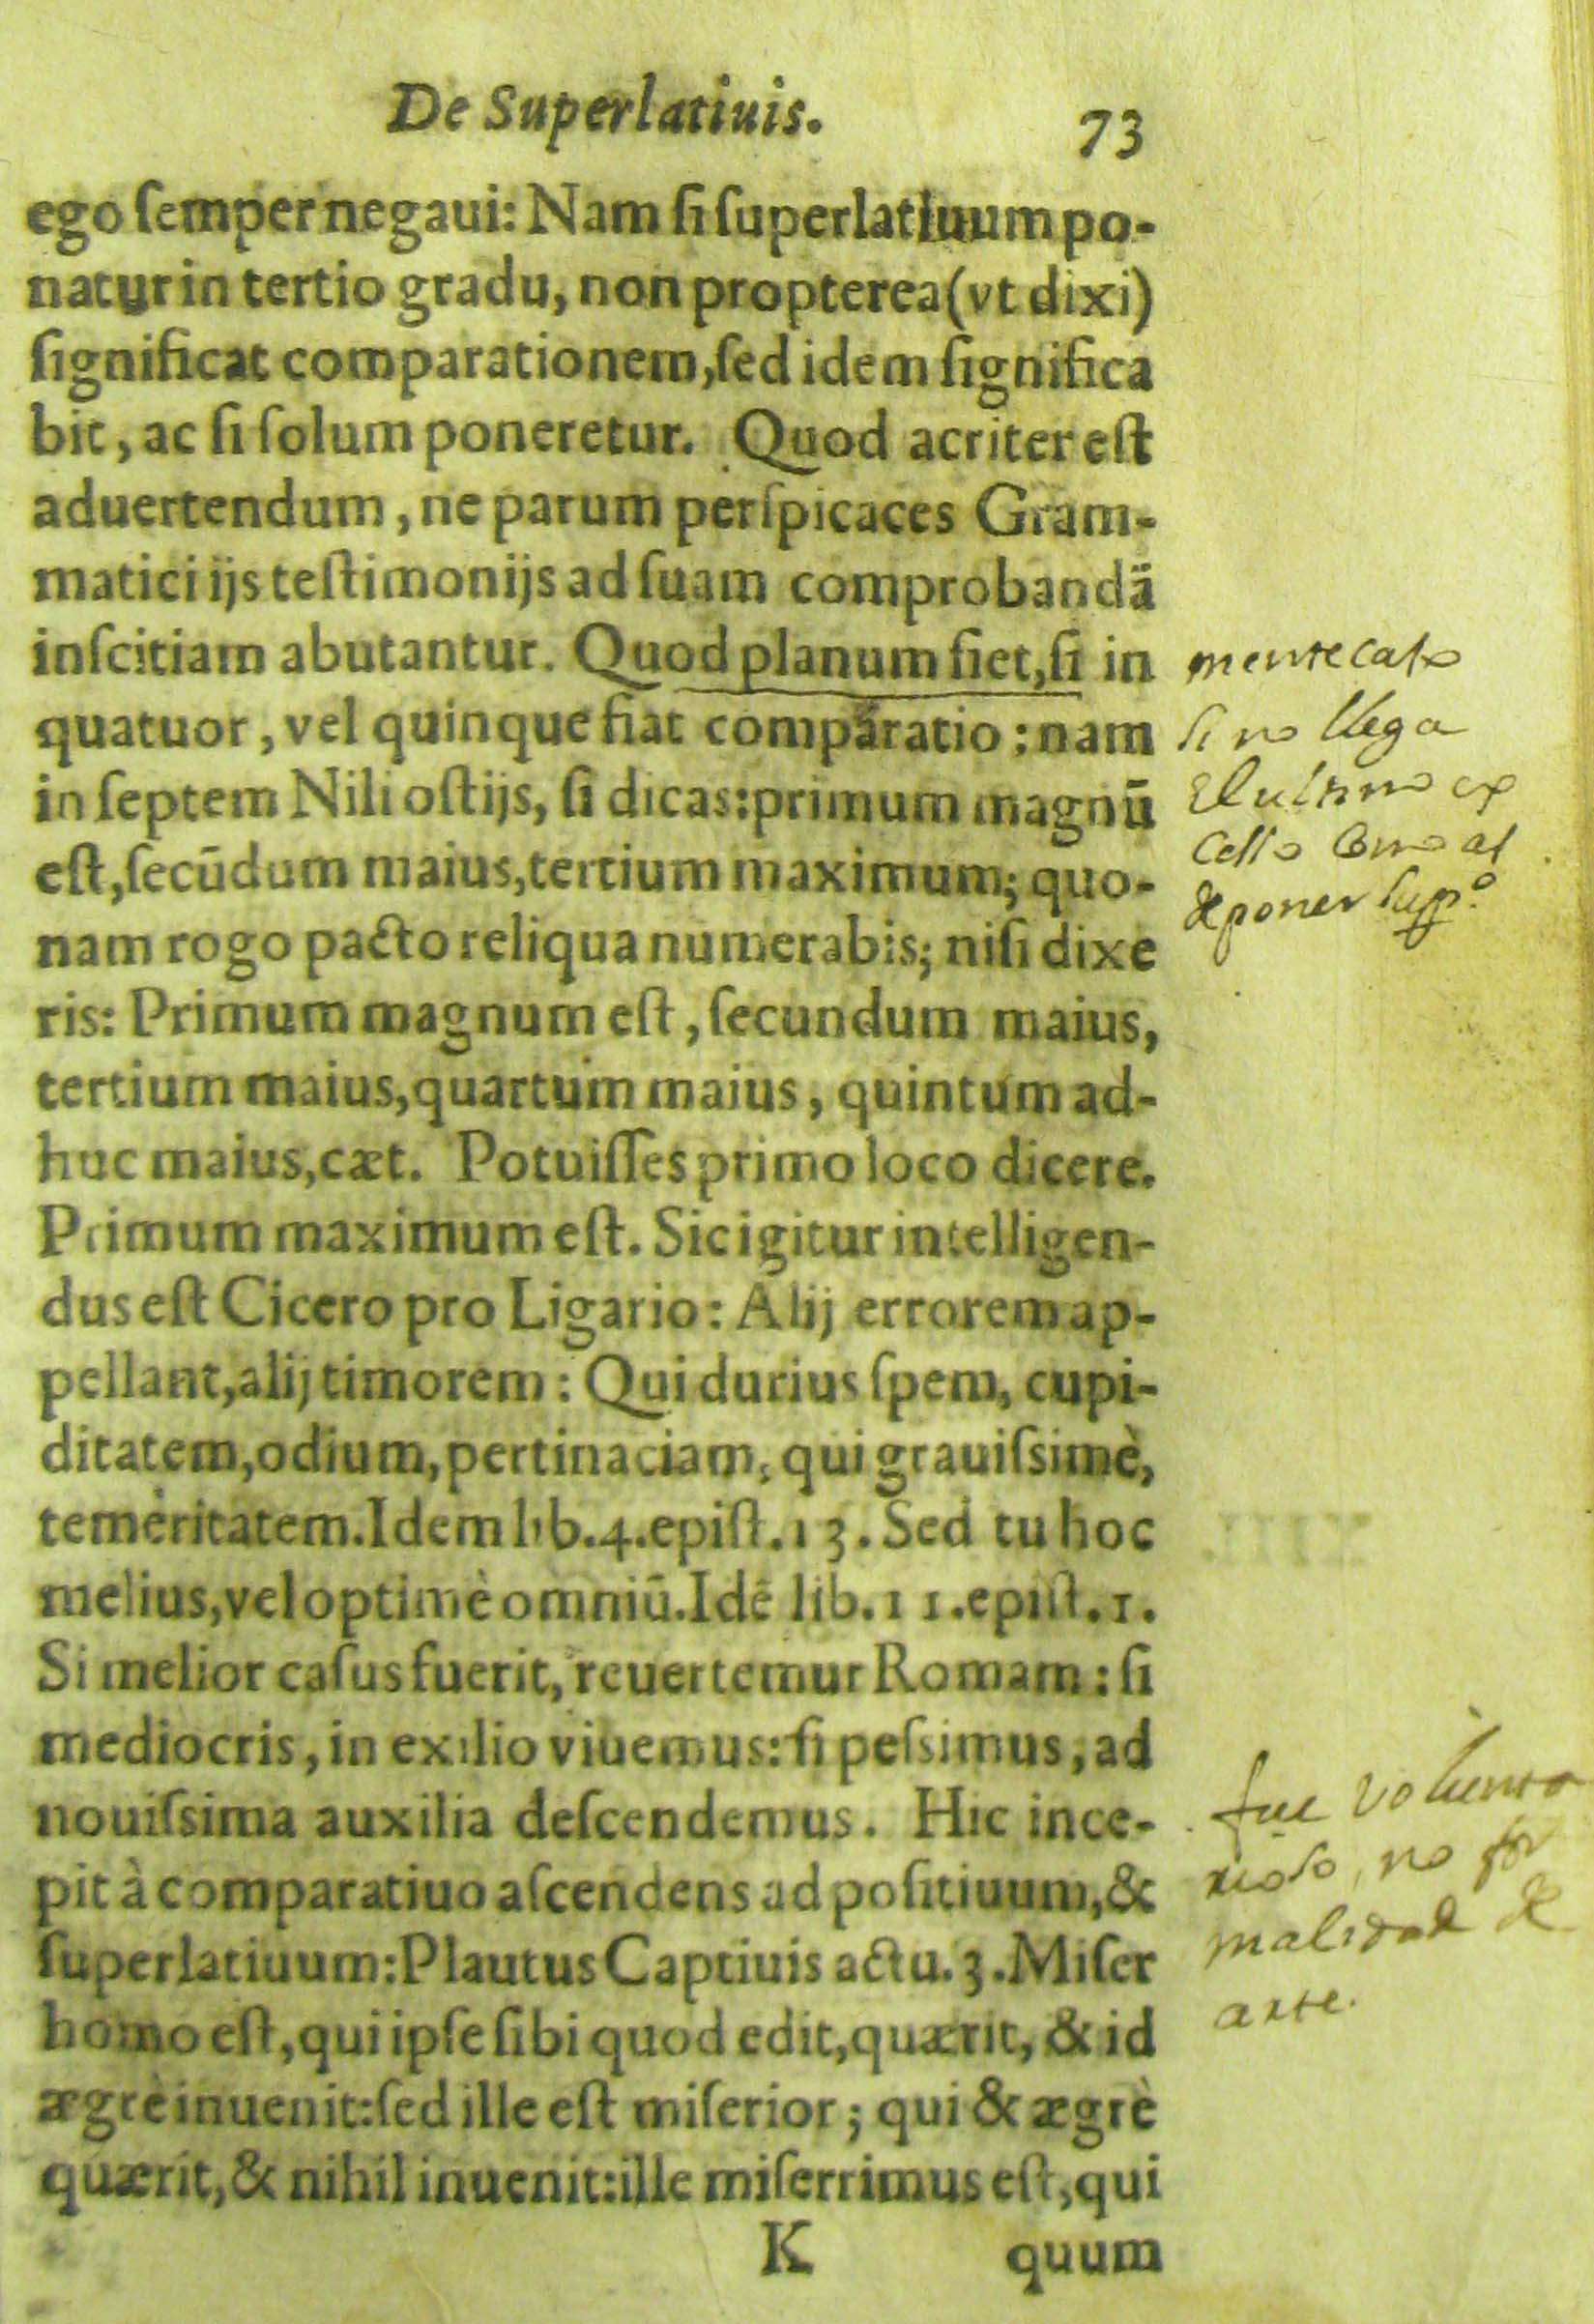 De Superlatiuis. 73
ego ſemper negaui: Nam ſi ſuperlatiuum po-
natur in tertio gradu, non propterea (vt dixi)
ſignificat comparationem, ſed idem ſignifica
bit, ac ſi ſolum poneretur. Quod acriter eſt
aduertendum, ne parum perſpicaces Gram-
matici ijs teſtimonijs ad ſuam comprobandā
inſcitiam abutantur. Quod planum fiet, ſi in
quatuor, vel quinque fiat comparatio: nam
in ſeptem Nili oſtijs, ſi dicas: primum magnū
eſt, ſecūdum maius, tertium maximum; quo-
nam rogo pacto reliqua numerabis; niſi dixe
ris: Primum magnum eſt, ſecundum maius,
tertium maius, quartum maius, quintum ad-
huc maius, cæt. Potuiſſes primo loco dicere.
Primum maximum eſt. Sic igitur intelligen-
dus eſt Cicero pro Ligario: Alij errorem ap-
pellant, alij timorem: Qui durius ſpem, cupi-
ditatem, odium, pertinaciam, qui grauiſsimè,
temeritatem. Idem lib. 4. epiſt. 13. Sed tu hoc
melius, vel optimè omniū. Idē lib. 11. epiſt. 1.
Si melior caſus fuerit, reuertemur Romam: ſi
mediocris, in exilio viuemus: ſi peſsimus, ad
nouiſsima auxilia deſcendemus. Hic ince-
pit à comparatiuo aſcendens ad poſitiuum, &
ſuperlatiuum: Plautus Captiuis actu. 3. Miſer
homo eſt, qui ipſe ſibi quod edit, quærit, & id
ægrè inuenit: ſed ille eſt miſerior; qui & ægrè
quærit, & nihil inuenit: ille miſerrimus eſt, qui
K quum
mentecato
si no llega
el ultimo ex
de poner sup.º
fue volunta
rioso, no for
malidad de
arte.